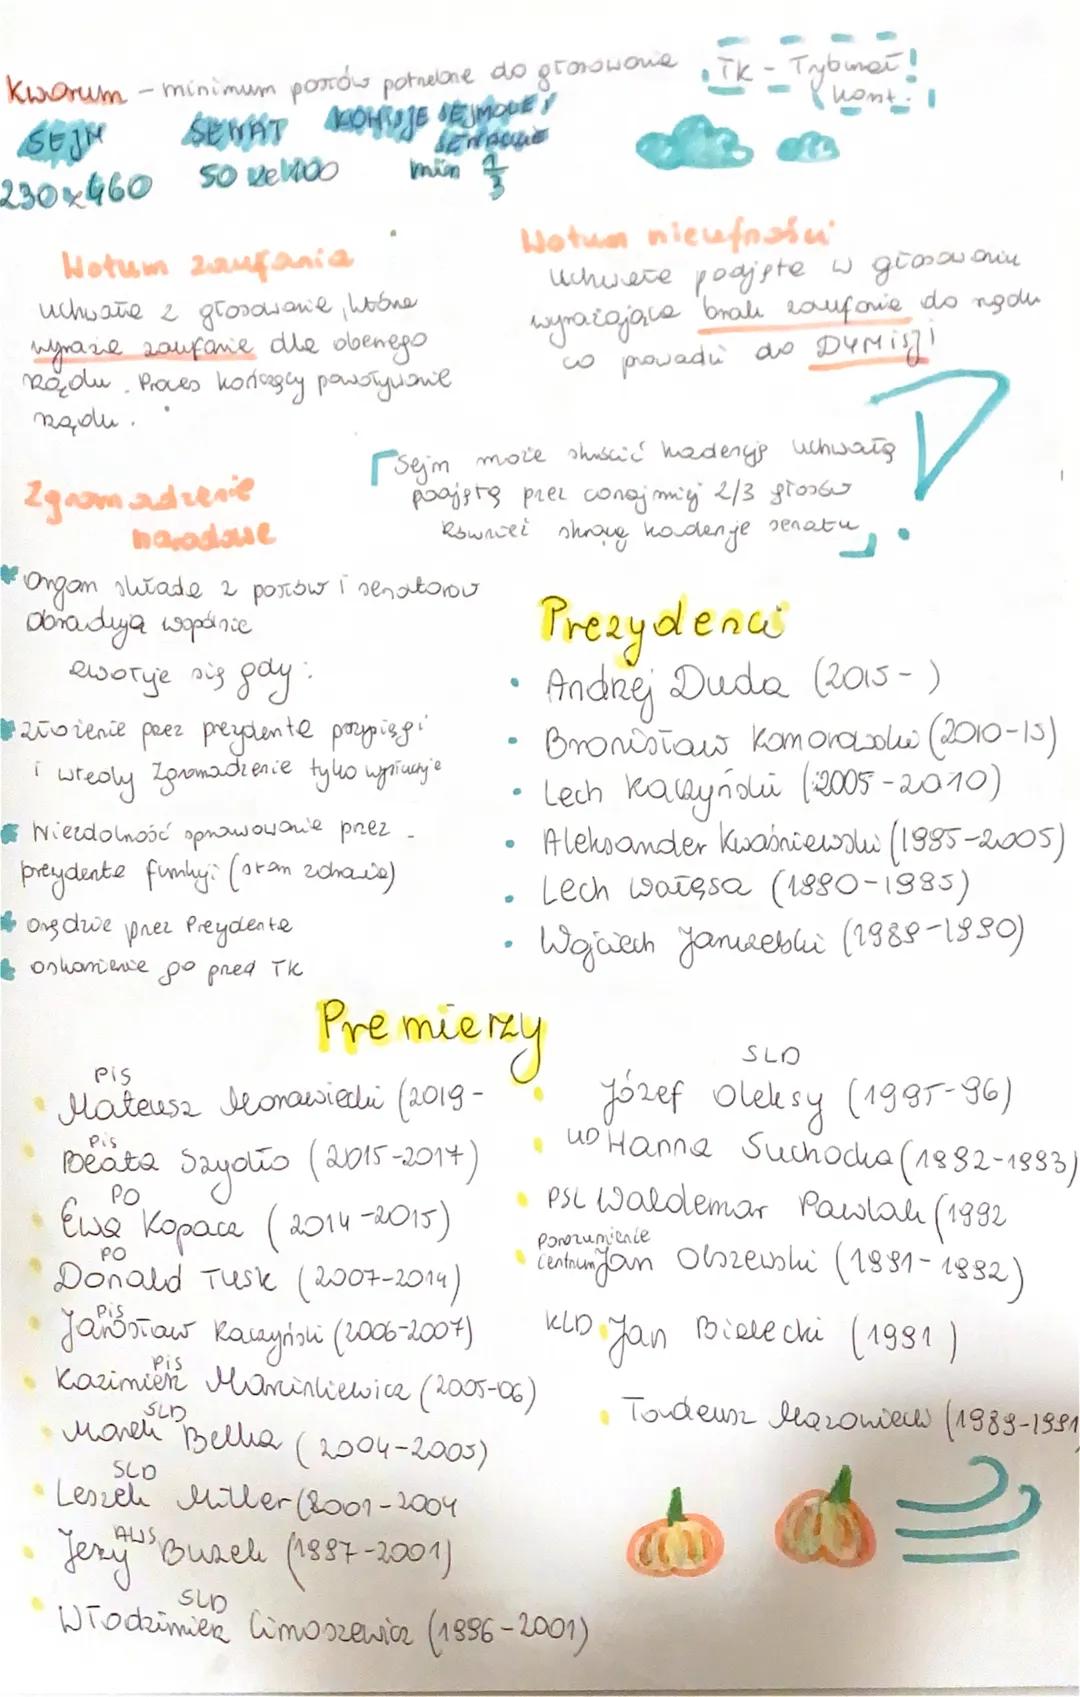 Kworum - minimum posłów potrzebne do głosowania
TK - Trybunał Konst.!
SEJM SENAT KOMISJE SEJMOWE / SENACKIE
230 z 460 50 ze 100 min 1/3
Wotum zaufania
uchwała z głosowanie, która
wyraża zaufanie dla obenego
rządu. Proces kończący powoływanie
rządu.
Wotum nieufności
uchwała podjęta w głosowaniu
wyrażająca brak zaufania do rządu
co prowadzi do DYMISJI
Sejm może skrócić kadencję uchwałą
podjętą przez conajmniej 2/3 głosów
Również skracą kadencje senatu
Zgromadzenie
narodowe
Organ składa z posłów i senatorów
obradują wspólnie
zwołuje się gdy:
złożenie przez prezydenta przysięgi
i wtedy Zgromadzenie tylko wysłuchuje
Niezdolność sprawowania przez
prezydenta funkcji (stan zdrowia)
orędzie przez Prezydenta
oskarżenie go przed TK
Prezydenci
Andrzej Duda (2015- )
Bronisław Komorowski (2010-15)
Lech Kaczyński (2005-2010)
Aleksander Kwaśniewski (1995-2005)
Lech Wałęsa (1990-1995)
Wojciech Jaruzelski (1989-1990)
Premierzy
PiS
Mateusz Morawiecki (2019-
PiS
Beata Szydło (2015-2017)
PO
Ewa Kopacz (2014-2015)
PO
Donald Tusk (2007-2014)
PiS
Jarosław Kaczyński (2006-2007)
PiS
Kazimierz Marcinkiewicz (2005-06)
SLD
Marek Belka (2004-2005)
SLD
Leszek Miller (2001-2004
AWS
Jerzy Buzek (1997-2001)
SLD
Włodzimierz Cimoszewicz (1996-2001)
SLD
Józef Oleksy (1995-96)
UD Hanna Suchocka (1992-1993)
PSL Waldemar Pawlak (1992
Porozumienie
Centrum Jan Olszewski (1991-1992)
KLD Jan Bielecki (1991)
Tadeusz Mazowiecki (1989-1991